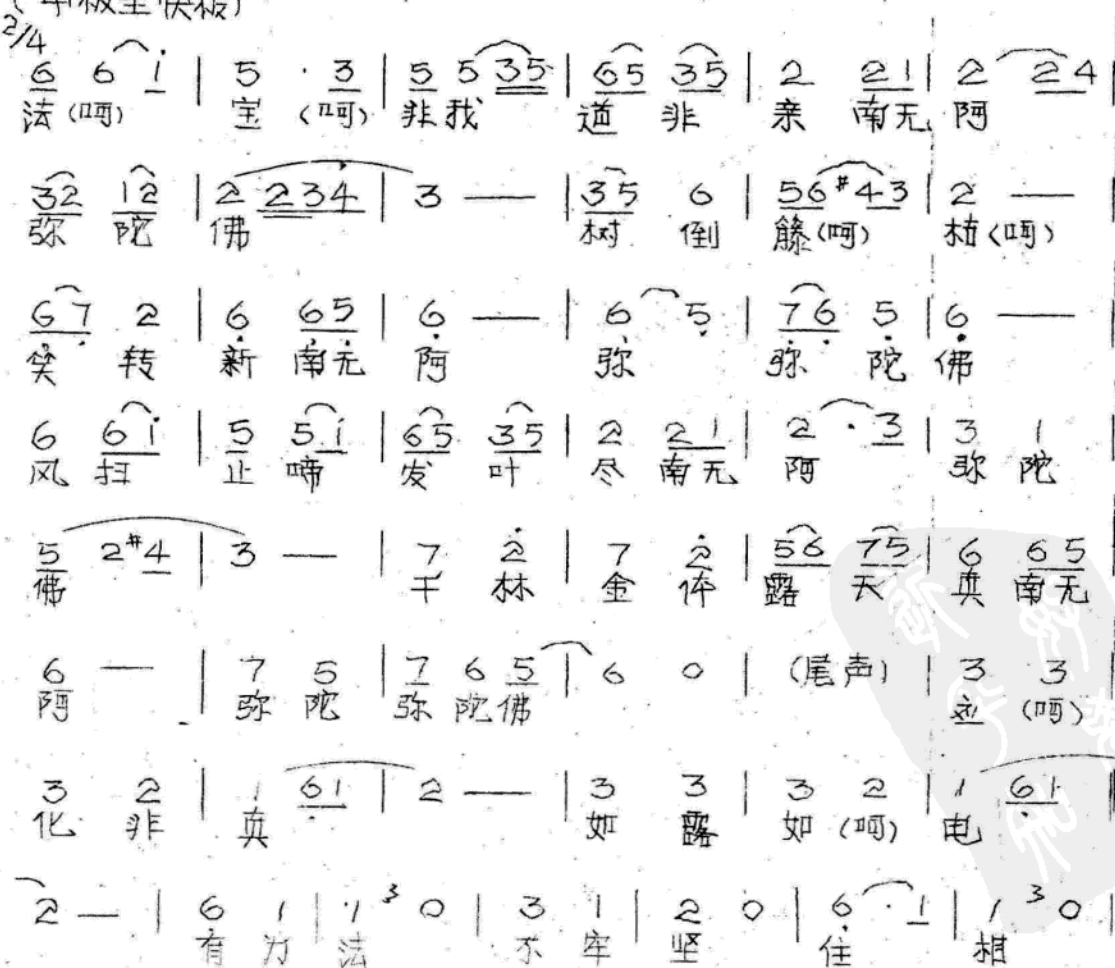 (中板至快板)
2/4
6 6 i | 5 · 3 | 5 5 35 | 65 35 | 2 21 | 2 24
法(呵) 宝(呵) 非我 道 非 亲 南无 阿
32 12 | 2 234 | 3 — | 35 6 | 56 #43 | 2 —
弥 陀 佛 树 倒 籐(呵) 枯(呵)
67 2 | 6 65 | 6 — | 6 5 | 76 5 | 6 —
笑 转 新 南无 阿 弥 弥 陀 佛
6 6i | 5 5i | 65 35 | 2 21 | 2 · 3 | 3 1
风 扫 止 啼 发 叶 尽 南无 阿 弥 陀
5 2 #4 | 3 — | 7 2 | 7 2 | 56 75 | 6 65
佛 千 林 金 体 露 天 真 南无
6 — | 7 5 | 7 6 5 | 6 0 | (尾声) | 3 3
阿 弥 陀 弥 陀 佛 (呵)
3 2 | 1 61 | 2 — | 3 3 | 3 2 | 1 61
化 非 真 如 露 如(呵) 电
2 — | 6 1 | 1 3 0 | 3 1 | 2 0 | 6 · 1 | 1 3 0
有 为 法 不 牢 坚 住 相